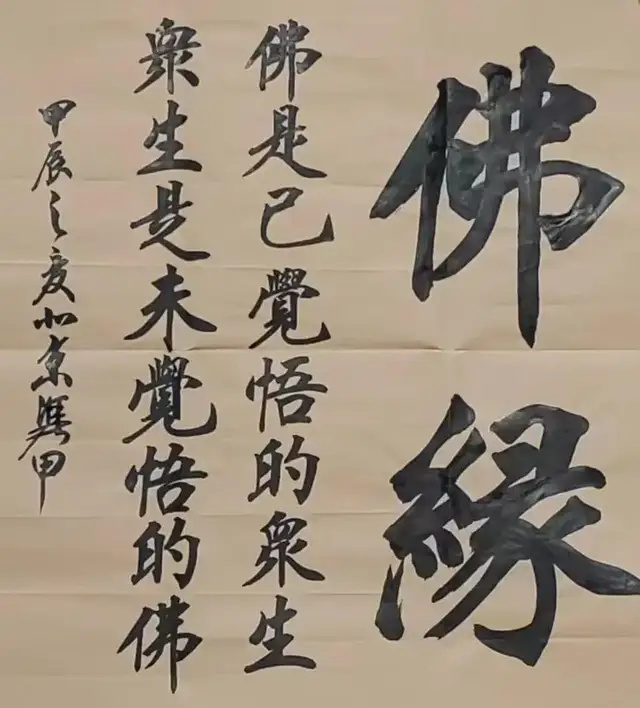 佛緣
佛是已覺悟的衆生
衆生是未覺悟的佛
甲辰之夏北京隽甲